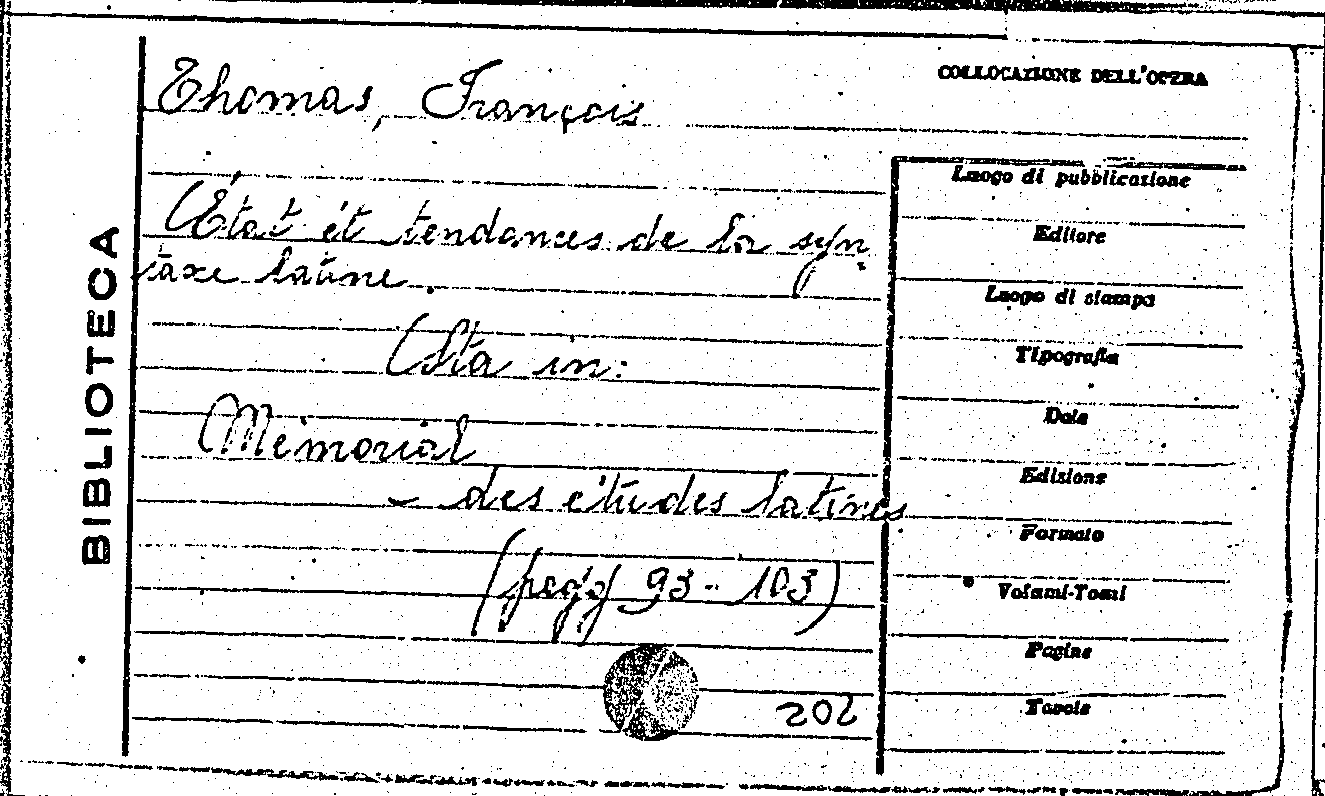 COLLOCAZIONE DELL'OPERA
Thomas, François
État et tendances de la syn
taxe latine.
Sta in:
Mémorial
- des études latines
(pagg 93-103)
202
BIBLIOTECA
Luogo di pubblicazione
Editore
Luogo di stampa
Tipografia
Data
Edizione
Formato
Volumi-Tomi
Pagine
Tavole